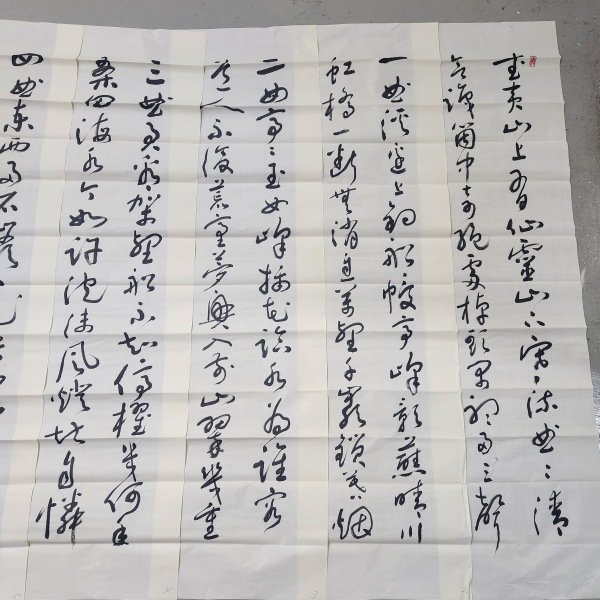 武夷山上有仙靈山下寒流曲曲清
欲識箇中奇絕處棹歌閑聽兩三聲
一曲溪邊上釣船幔亭峰影蘸晴川
虹橋一斷無消息萬壑千巖鎖烟
二曲亭亭玉女峰插花臨水為誰容
道人不復臺夢興入前山翠幾重
三曲君看架壑船不知停櫂幾何年
桑田海水今如許泡沫風燈敢自憐
四曲東西兩石巖